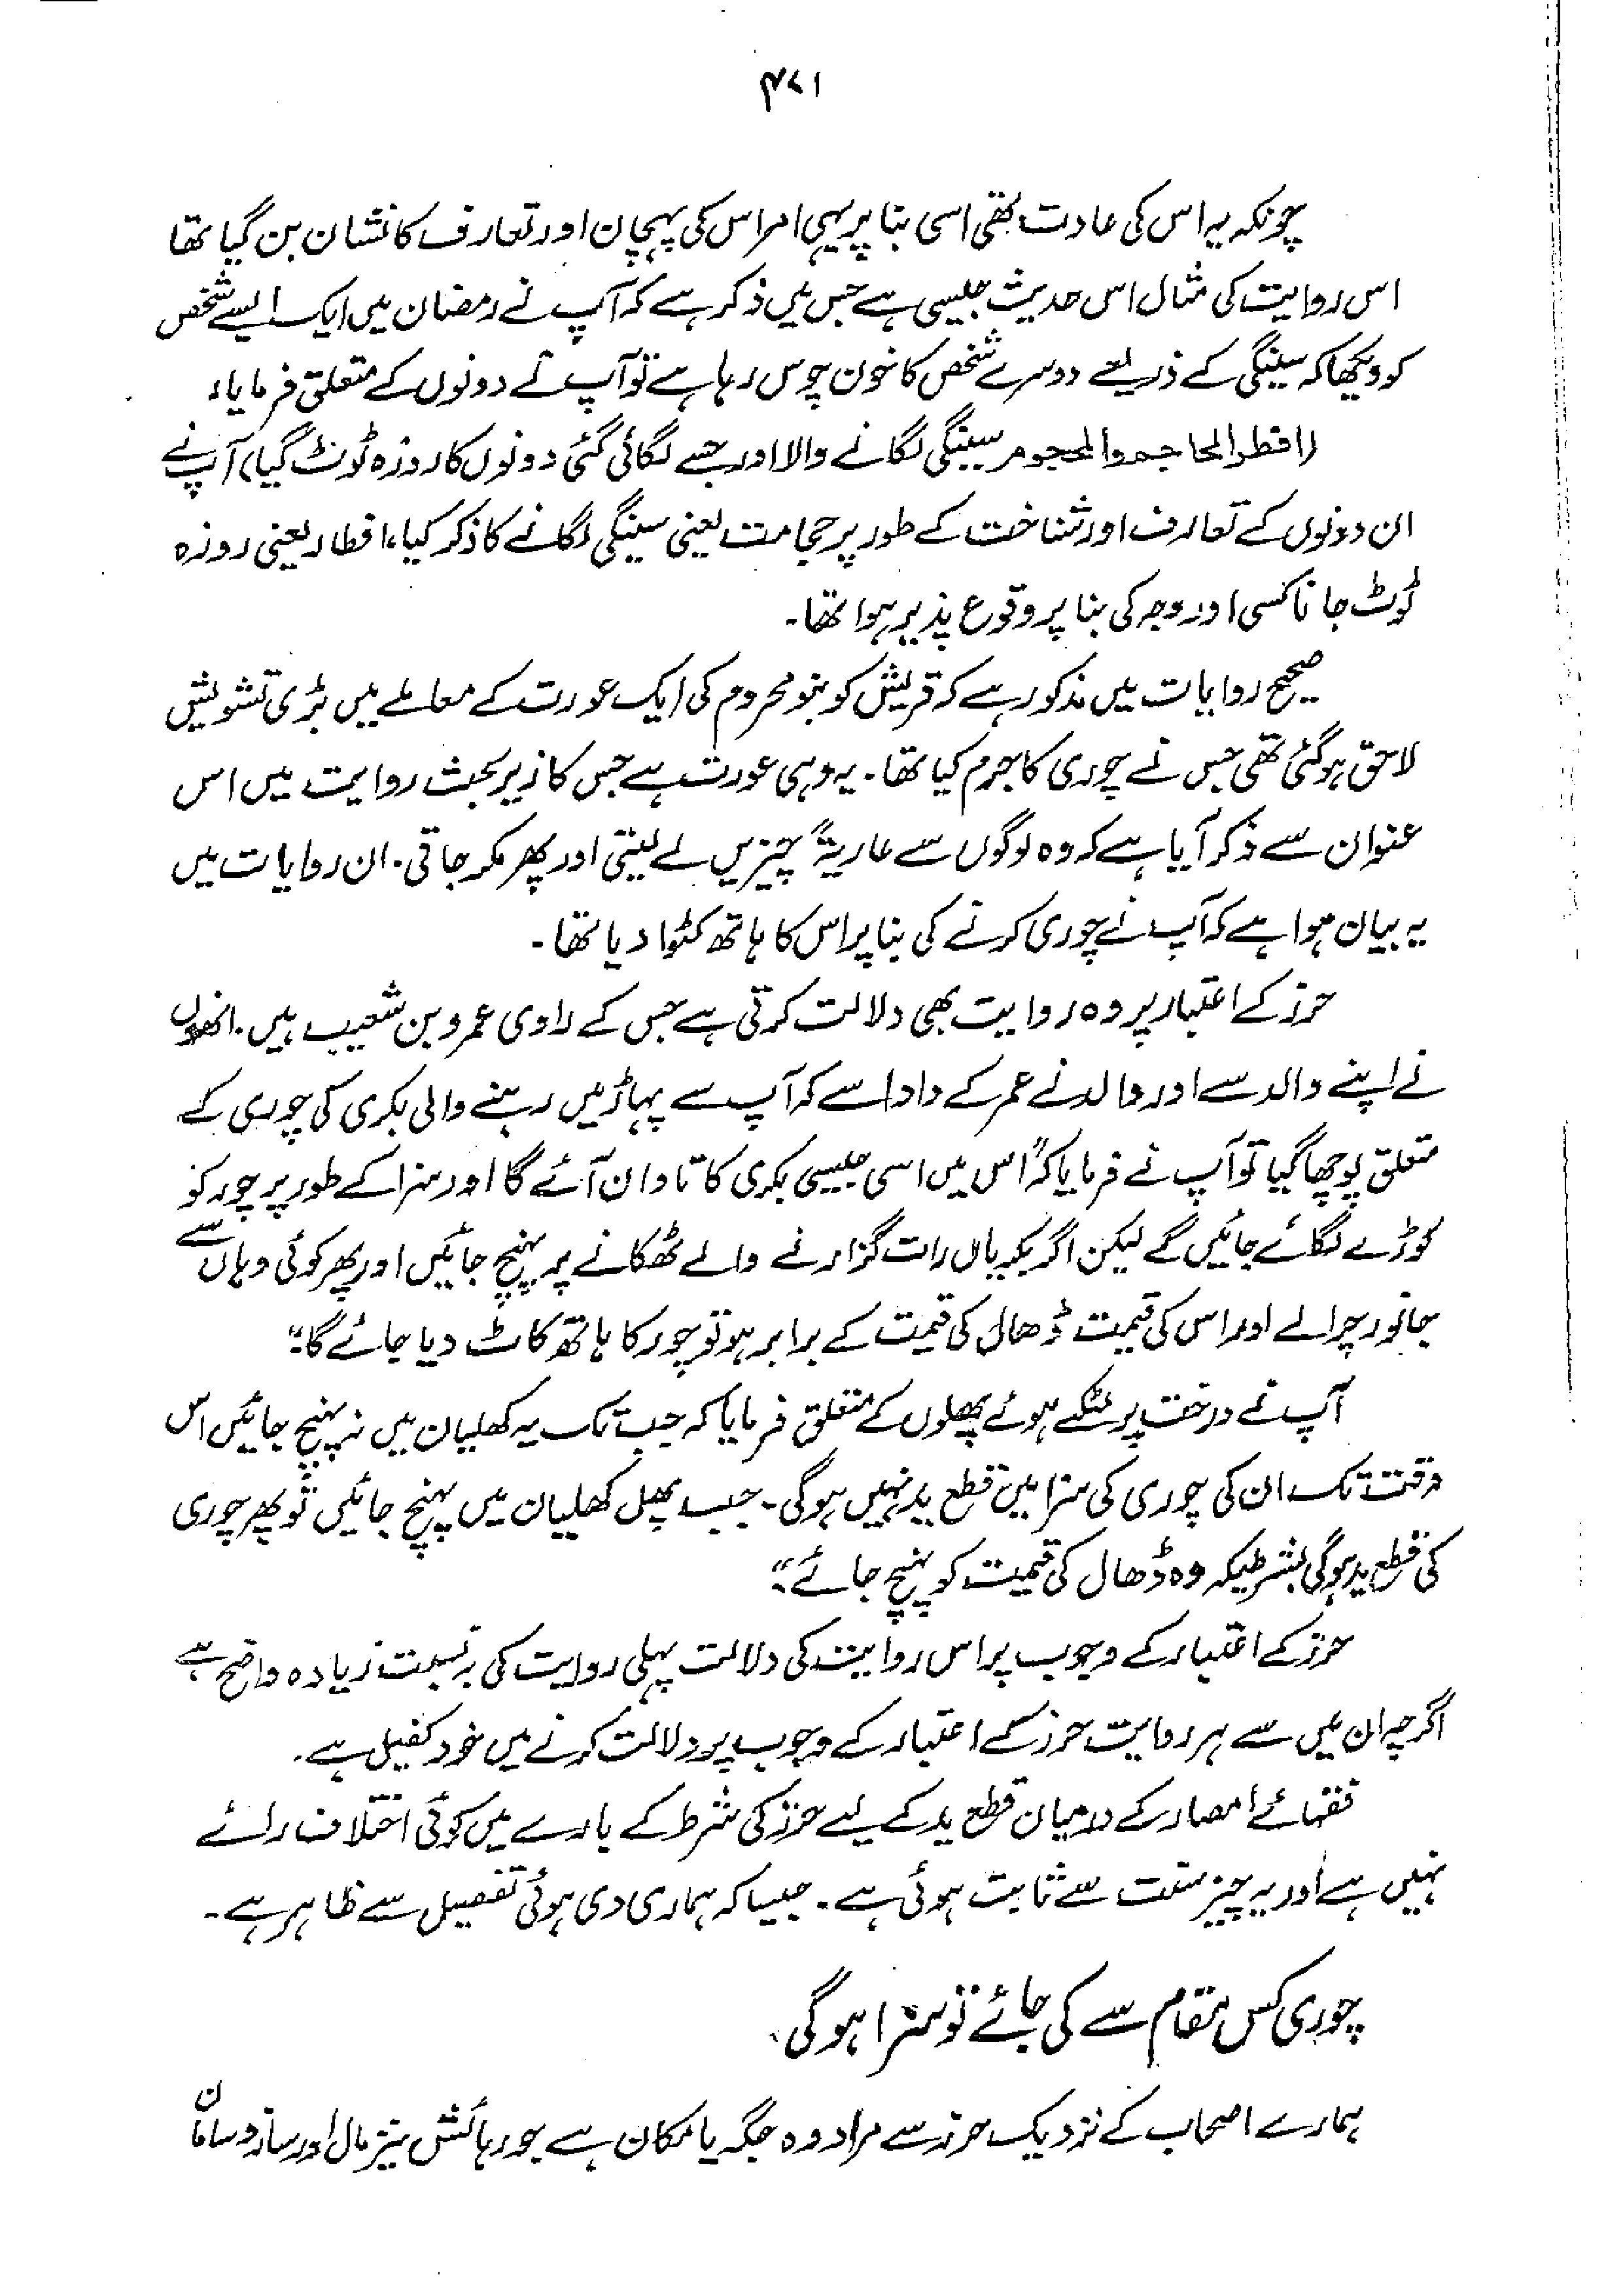 ۴۷۱
چونکہ یہ اس کی عادت تھی اسی بنا پر یہی امر اس کی پہچان اور تعارف کا نشان بن گیا تھا
اس روایت کی مثال اس حدیث جیسی ہے جس میں ذکر ہے کہ آپ نے رمضان میں ایک ایسے شخص
کو دیکھا کہ سینگی کے ذریعے دوسرے شخص کا خون چوس رہا ہے تو آپ نے دونوں کے متعلق فرمایا،
(افطر الحاجم والمحجوم سینگی لگانے والا اور جسے لگائی گئی دونوں کا روزہ ٹوٹ گیا) آپ نے
ان دونوں کے تعارف اور شناخت کے طور پر حجامت یعنی سینگی لگانے کا ذکر کیا، افطار یعنی روزہ
ٹوٹ جانا کسی اور وجہ کی بنا پر وقوع پذیر ہوا تھا۔
صحیح روایات میں مذکور ہے کہ قریش کو بنو محزوم کی ایک عورت کے معاملے میں بڑی تشویش
لاحق ہو گئی تھی جس نے چوری کا جرم کیا تھا۔ یہ وہی عورت ہے جس کا زیر بحث روایت میں اس
عنوان سے ذکر آیا ہے کہ وہ لوگوں سے عاریۃً چیزیں لے لیتی اور پھر مکر جاتی۔ ان روایات میں
یہ بیان ہوا ہے کہ آپ نے چوری کرنے کی بنا پر اس کا ہاتھ کٹوا دیا تھا۔
حرز کے اعتبار پر وہ روایت بھی دلالت کرتی ہے جس کے راوی عمرو بن شعیب ہیں۔ انھوں
نے اپنے والد سے اور والد نے عمر کے دادا سے کہ آپ سے پہاڑ میں رہنے والی بکری کی چوری کے
متعلق پوچھا گیا تو آپ نے فرمایا کہ "اس میں اسی جیسی بکری کا تاوان آئے گا اور سزا کے طور پر چور کو
کوڑے لگائے جائیں گے لیکن اگر بکریاں رات گزارنے والے ٹھکانے پر پہنچ جائیں اور پھر کوئی وہاں سے
جانور چرا لے اور اس کی قیمت ڈھال کی قیمت کے برابر ہو تو چور کا ہاتھ کاٹ دیا جائے گا"۔
آپ نے درخت پر لٹکے ہوئے پھلوں کے متعلق فرمایا کہ جب تک یہ کھلیان میں نہ پہنچ جائیں اس
وقت تک ان کی چوری کی سزا میں قطع ید نہیں ہوگی۔ جب پھل کھلیان میں پہنچ جائیں تو پھر چوری
کی قطع ید ہوگی بشرطیکہ وہ ڈھال کی قیمت کو پہنچ جائے"۔
حرز کے اعتبار کے وجوب پر اس روایت کی دلالت پہلی روایت کی بہ نسبت زیادہ واضح ہے
اگرچہ ان میں سے ہر روایت حرز کے اعتبار کے وجوب پر دلالت کرنے میں خود کفیل ہے۔
فقہائے امصار کے درمیان قطع ید کے لیے حرز کی شرط کے بارے میں کوئی اختلاف رائے
نہیں ہے اور یہ چیز سنت سے ثابت ہوئی ہے۔ جیسا کہ ہماری دی ہوئی تفصیل سے ظاہر ہے۔
چوری کس مقام سے کی جائے تو سزا ہوگی
ہمارے اصحاب کے نزدیک حرز سے مراد وہ جگہ یا مکان ہے جو رہائش نیز مال اور ساز و سامان